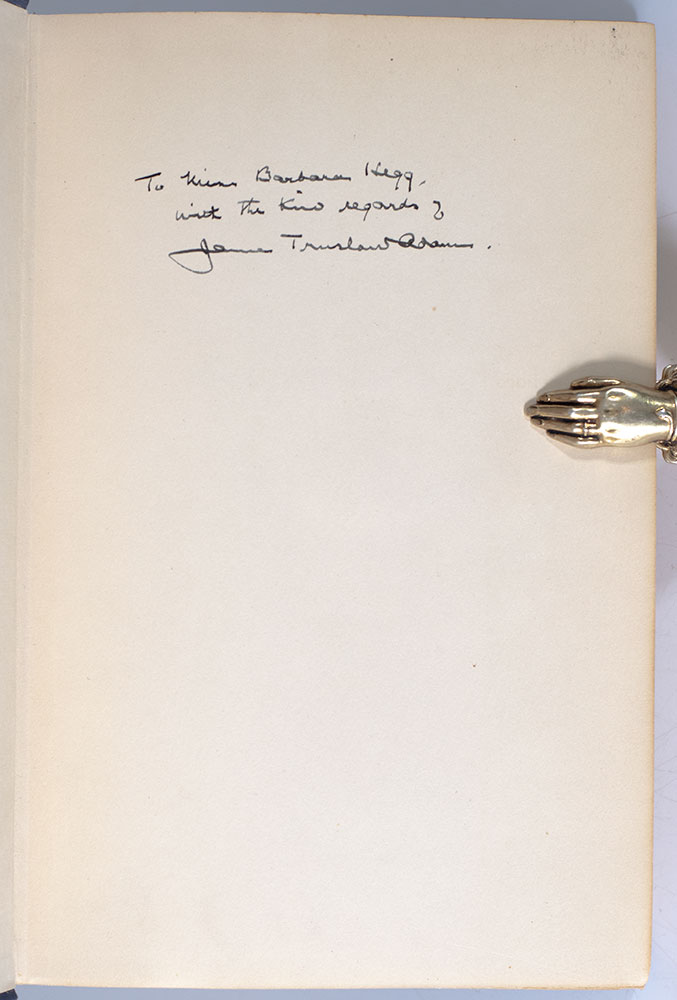 To Miss Barbara Hegg,
with the kind regards of
James Truslow Adams.